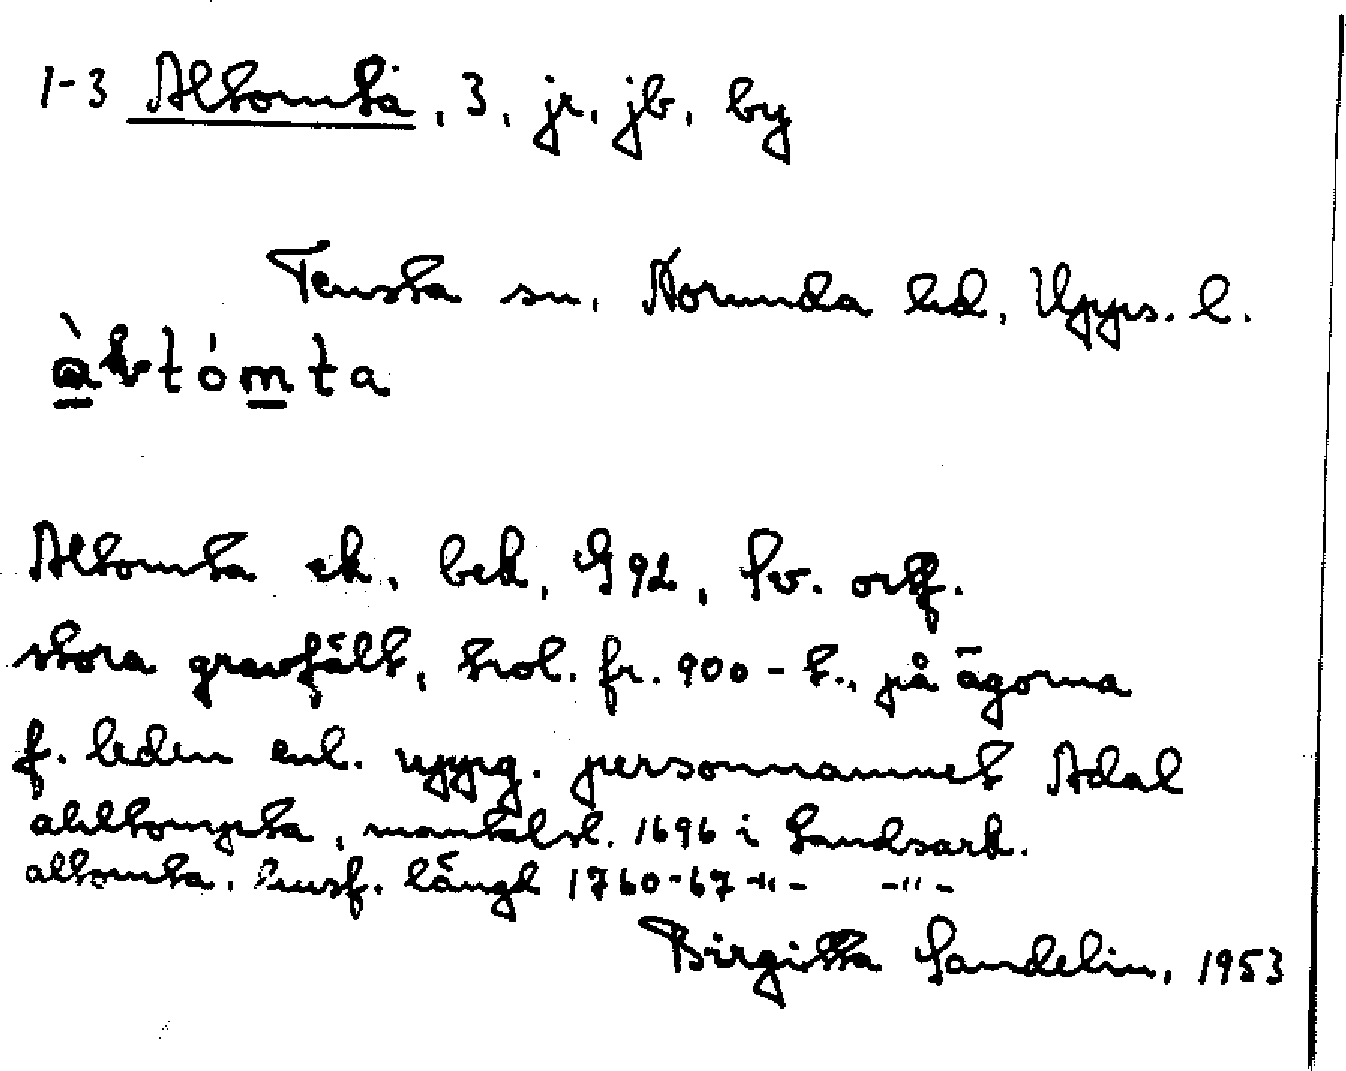 1-3 Altomta, 3, jr. jb, by
Tensta sn. Norunda hd, Upps. l.
àltómta
Altomta ek. bek, G 92, Sv. ortf.
stora gravfält, trol. fr. 900-t., på ägorna
f. leden enl. uppg. personnamnet Adal
alltompta, mantalsl. 1696 i Landsark.
altomta. husf. längd 1760-67 -"- -"-
Birgitta Sandelin, 1953